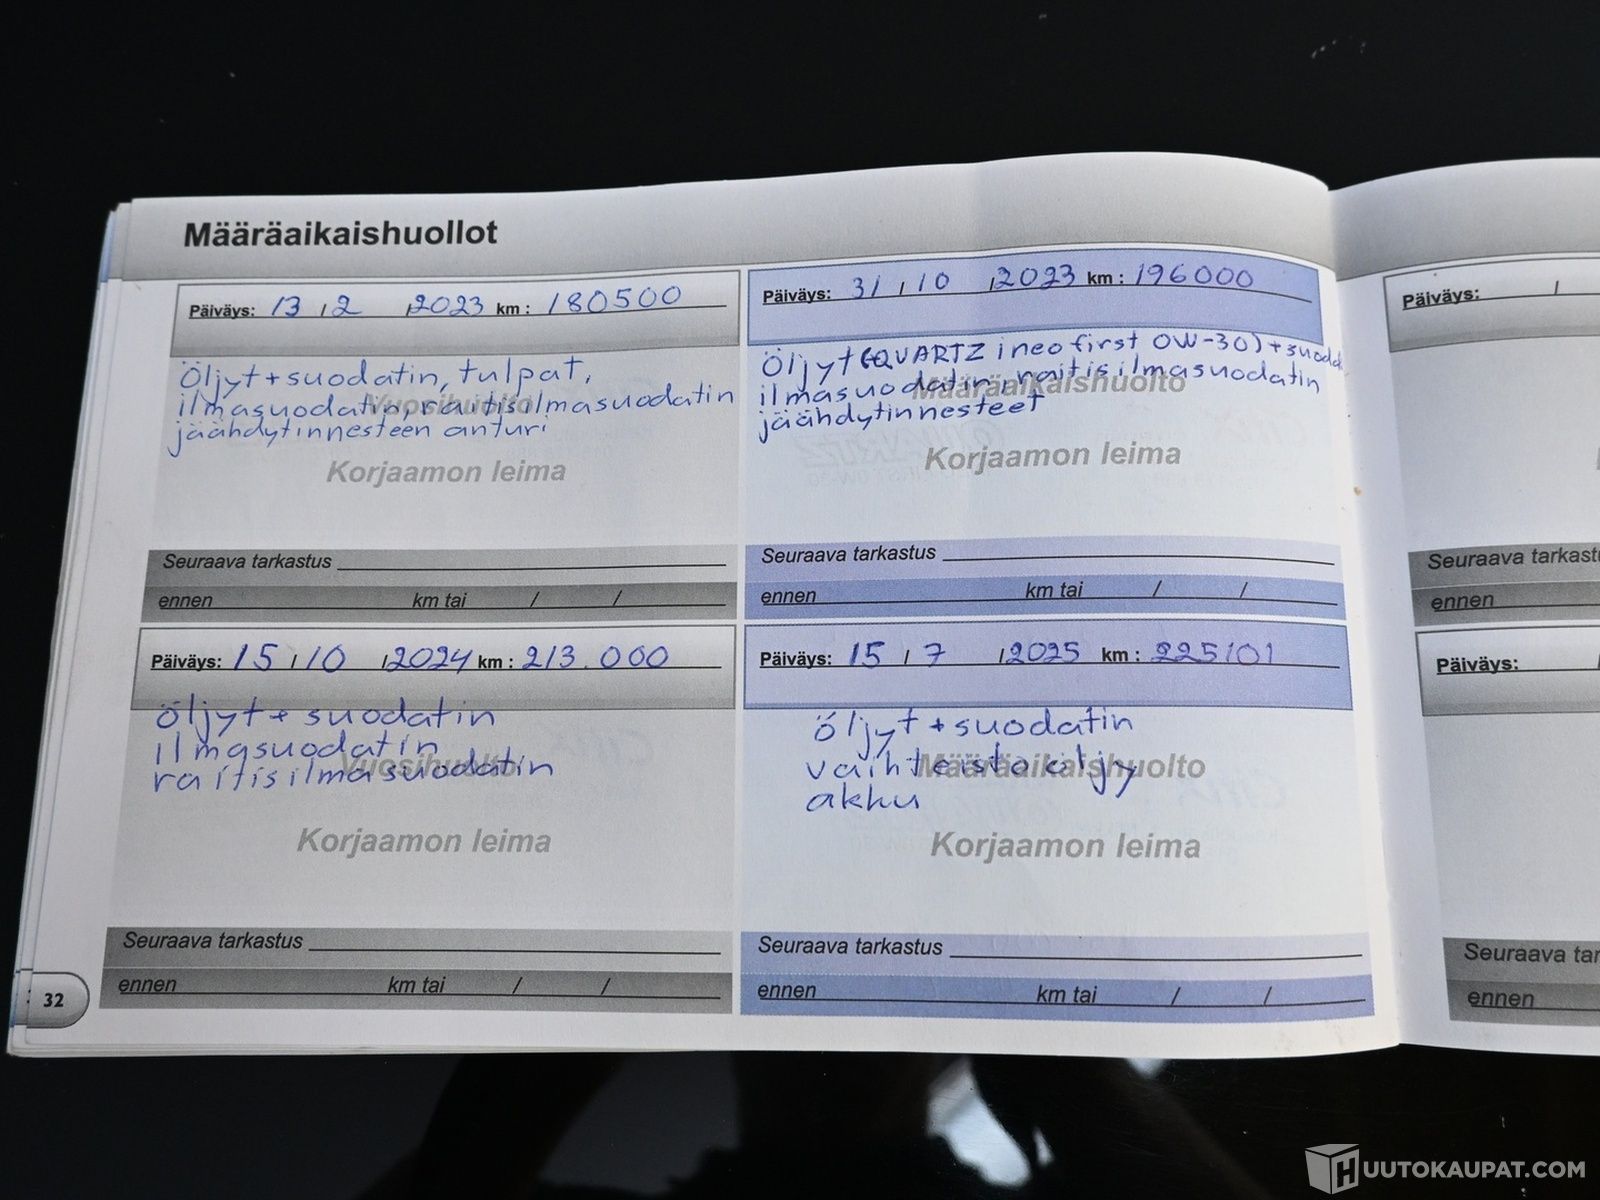 Määräaikaishuollot
Päiväys: 13 / 2 / 2023 km : 180500
Öljyt + suodatin, tulpat,
ilmasuodatin, raitisilmasuodatin
Vuosihuolto
jäähdytinnesteen anturi
Korjaamon leima
Seuraava tarkastus
ennen km tai / /
Päiväys: 31 / 10 / 2023 km : 196000
Öljyt (QUARTZ ineo first 0W-30) + suoda
ilmasuodatin, raitisilmasuodatin
Määräaikaishuolto
jäähdytinnesteet
Korjaamon leima
Seuraava tarkastus
ennen km tai / /
Päiväys: 15 / 10 / 2024 km : 213.000
öljyt + suodatin
ilmasuodatin
Vuosihuolto
raitisilmasuodatin
Korjaamon leima
Seuraava tarkastus
ennen km tai / /
32
Päiväys: 15 / 7 / 2025 km : 225101
öljyt + suodatin
vaihteistoöljy
Määräaikaishuolto
akku
Korjaamon leima
Seuraava tarkastus
ennen km tai / /
Päiväys: /
Seuraava tarkast
ennen
Päiväys:
Seuraava tar
ennen
HUUTOKAUPAT.COM